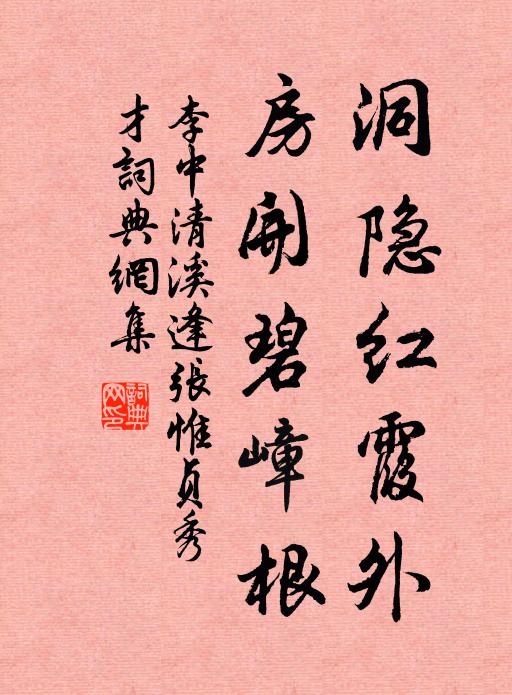 洞隐红霞外
房開碧嶂根
李中清溪逢張惟貞秀
才詞典網集
詞典
网印